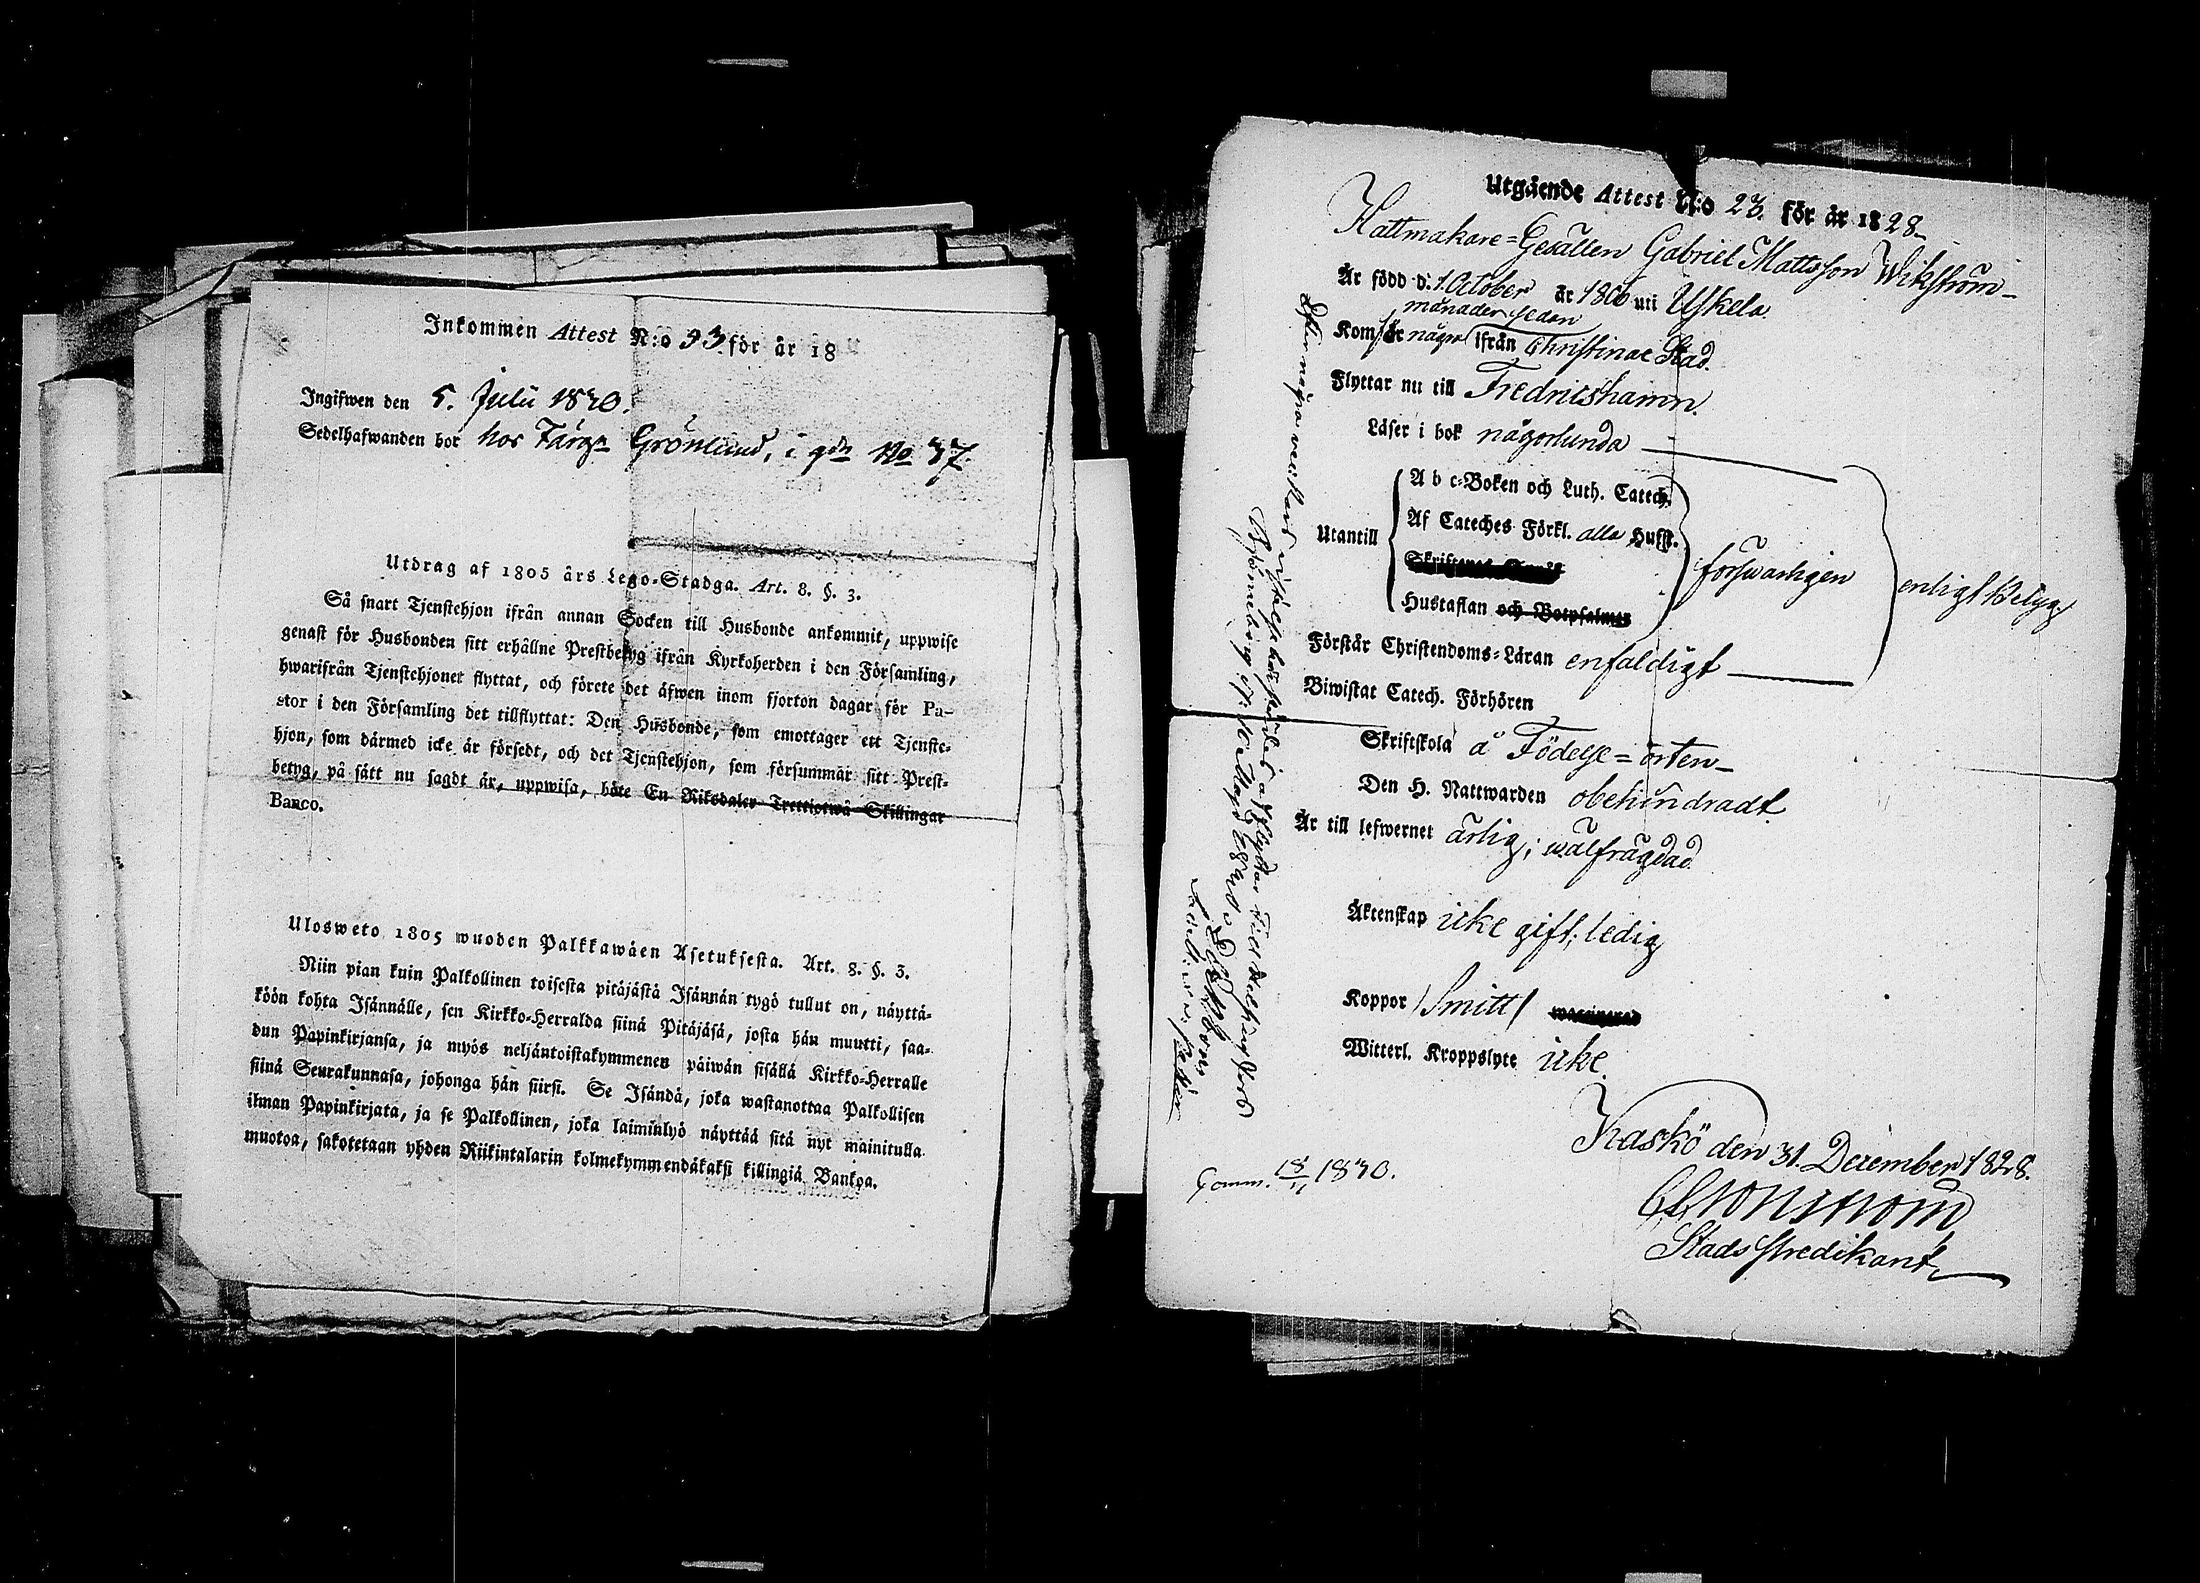 Inkommen Attest N:o 93 för år 18
Ingifwen den 5. Julii 1830.
Sedelhafwanden bor hos Färg:n Grönlund, i gdn No 37.
Utdrag af 1805 års Lego-Stadga. Art. 8. §. 3.
Så snart Tjenstehjon ifrån annan Socken till Husbonde ankommit, uppwise
genast för Husbonden sitt erhållne Prestbetyg ifrån Kyrkoherden i den Församling,
hwarifrån Tjenstehjonet flyttat, och förete det äfwen inom fjorton dagar för Pa-
stor i den Församling det tillflyttat: Den Husbonde, som emottager ett Tjenste-
hjon, som därmed icke är försedt, och det Tjenstehjon, som försummar sitt Prest-
betyg, på sätt nu sagdt är, uppwisa, böte En Riksdaler Trettiotwå Skillingar
Banco.
Ulosweto 1805 wuoden Palkkawäen Asetuksesta. Art. 8. §. 3.
Niin pian kuin Palkollinen toisesta pitäjästä Isännän tygö tullut on, näyttä-
köön kohta Isännälle, sen Kirkko-Herralda siinä Pitäjäsä, josta hän muutti, saa-
dun Papinkirjansa, ja myös neljäntoistakymmenen päiwän sisällä Kirkko-Herralle
siinä Seurakunnasa, johonga hän siirsi. Se Isändä, joka wastanottaa Palkollisen
ilman Papinkirjata, ja se Palkollinen, joka laiminlyö näyttää sitä nyt mainitulla
muotoa, sakotetaan yhden Riikintalarin kolmekymmendäkaksi killingiä Bankoa.
Utgående Attest N:o 23. för år 1828.
Hattmakare-Gesällen Gabriel Mattsson Wikström
Är född d. 1. October år 1806 uti Uskela
månader sedan
Kom för några ifrån Christinae Stad.
Flyttar nu till Fredricshamn.
Läser i bok någorlunda
A b c-Boken och Luth. Catech.
Af Cateches Förkl. alla Husst.
Utantill
Hustaflan och Botpsalmer
förswarligen
enligt Betyg
Förstår Christendoms-Läran enfaldigt
Biwistat Catech. Förhören
Skriftskola å Födelse-orten
Den H. Nattwarden obehindradt
Är till lefwernet ärlig; wälfrägdad
Äktenskap icke gift; ledig
Koppor /Smitt/
Witterl. Kroppslyte icke.
Kaskö den 31. December 1828.
Stads Predikant
Efter några veckors
Björneborg
Comm. 18/11 1830.